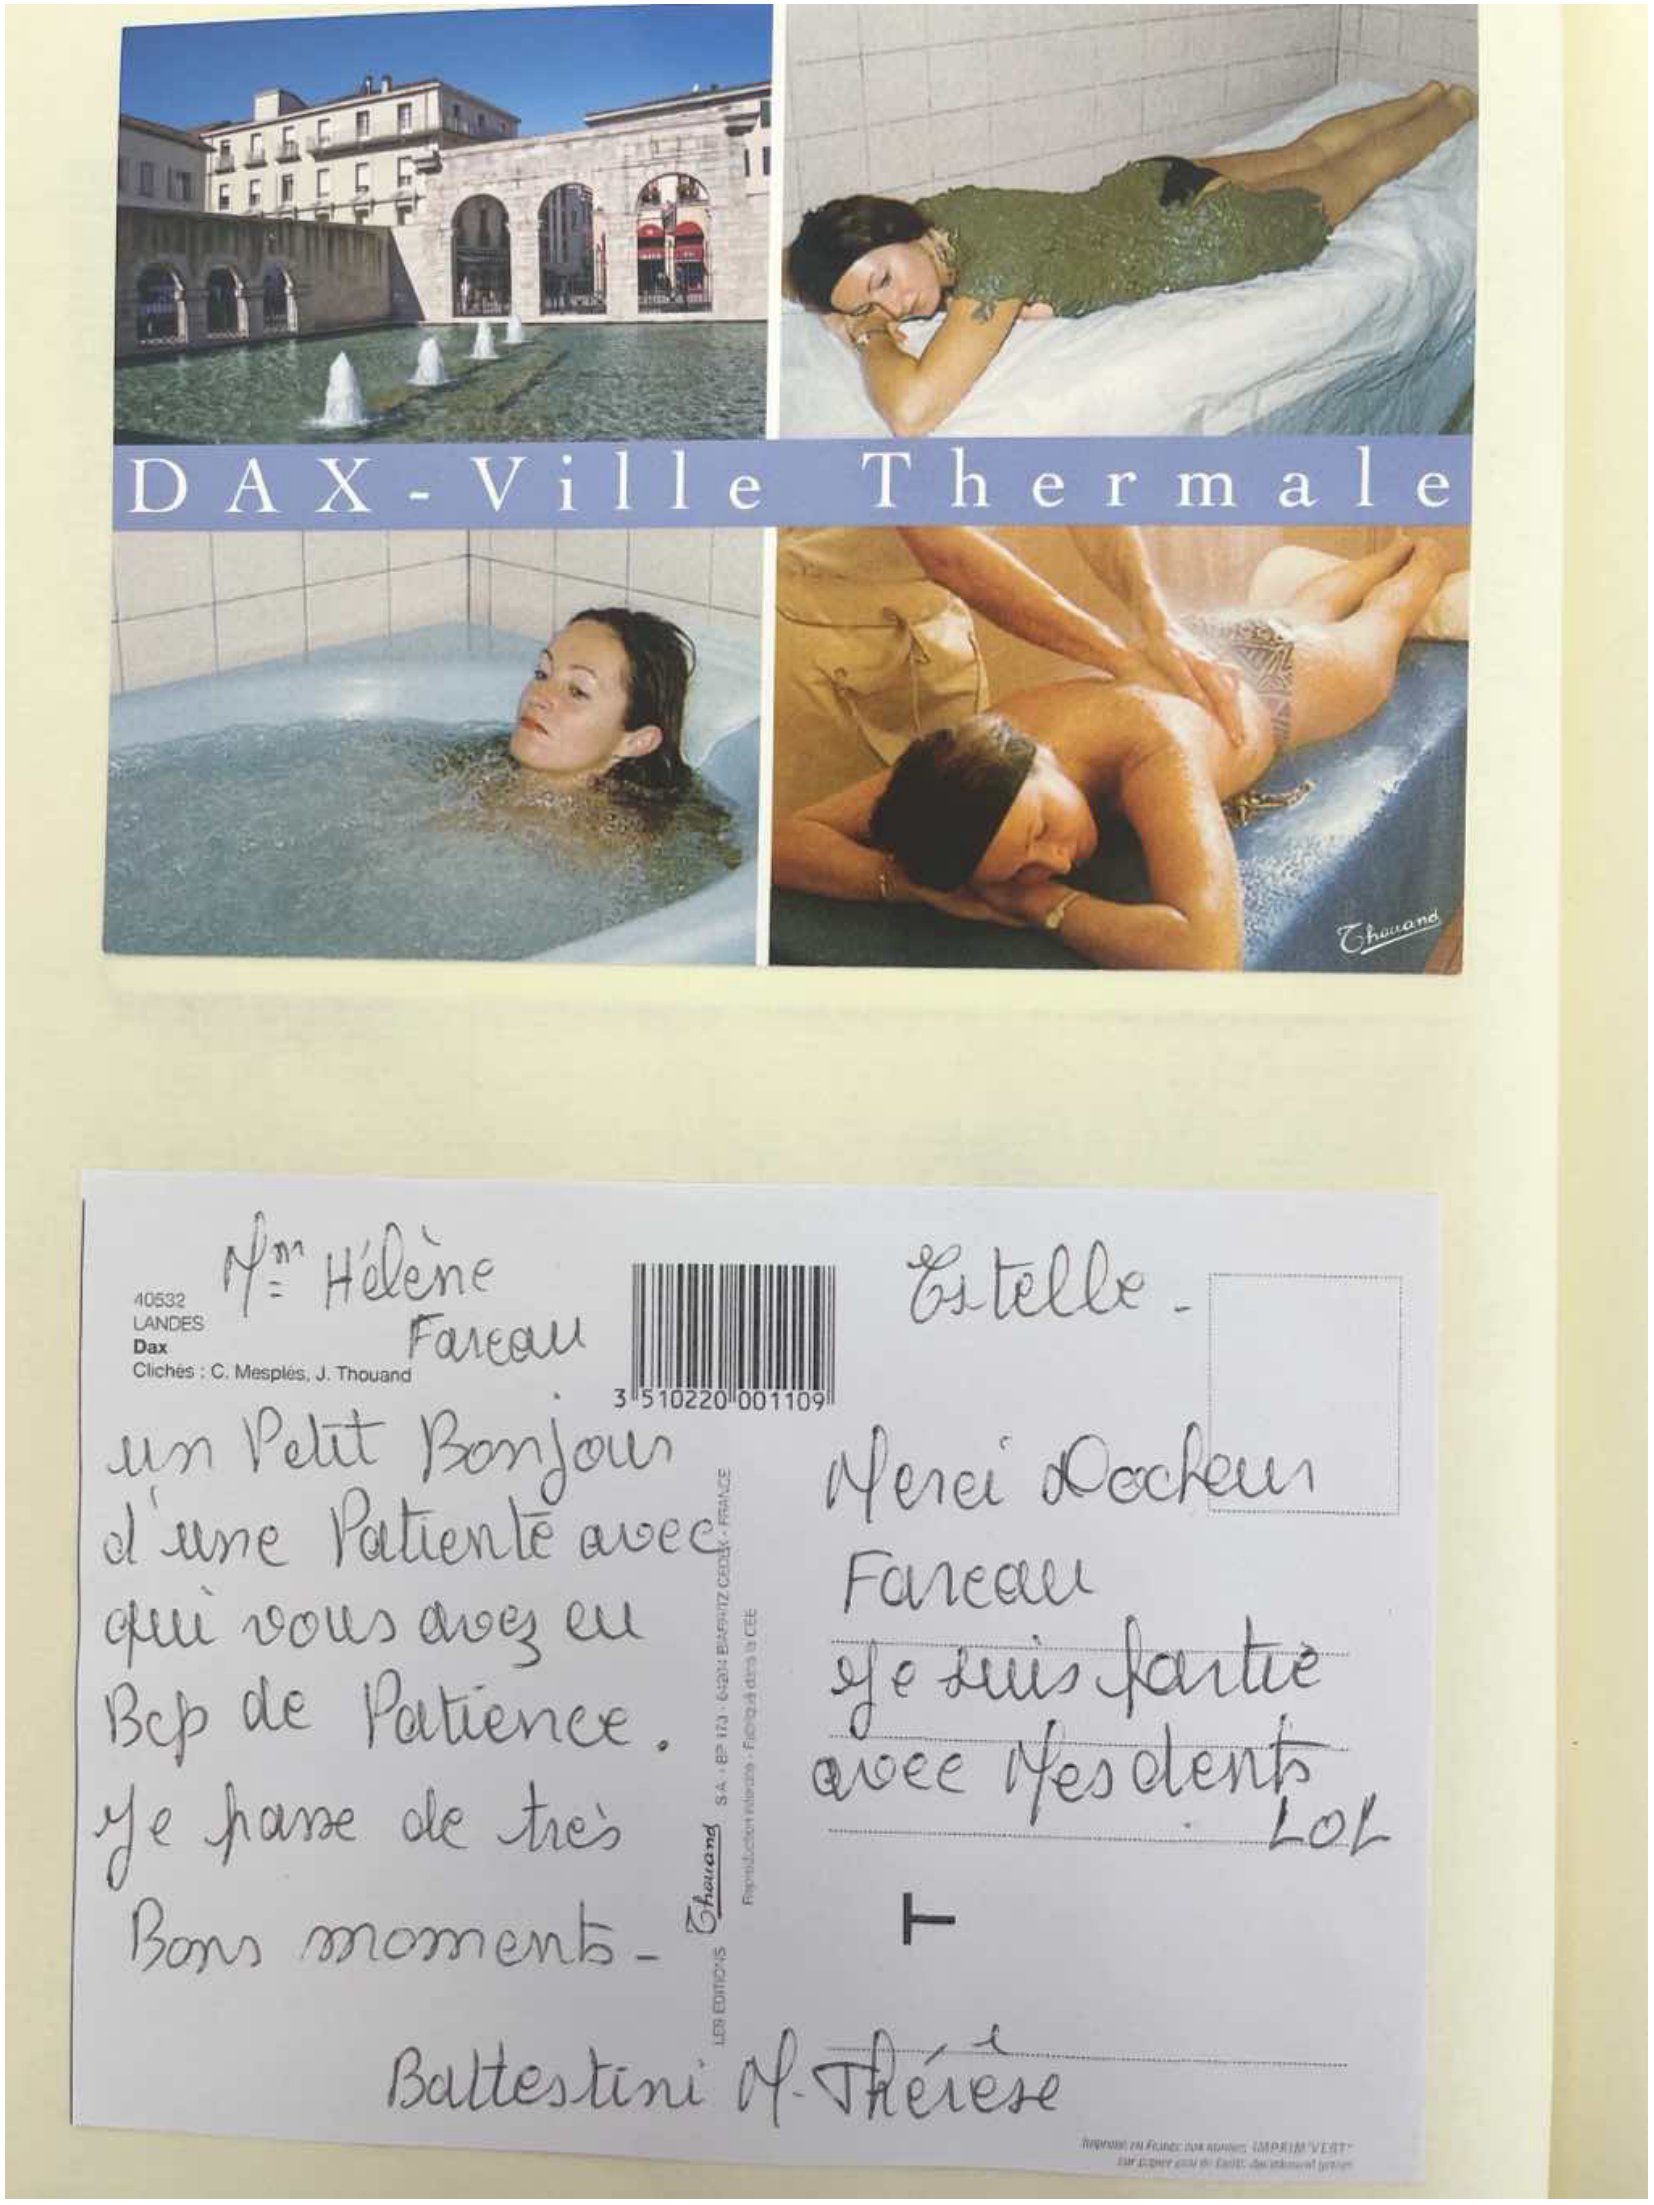 DAX - Ville Thermale
Thouand
Mme Hélène
Fareau
40532
LANDES
Dax
Clichés : C. Mesplès, J. Thouand
3 510220 001109
un Petit Bonjour
d'une Patiente avec
qui vous avez eu
Bcp de Patience.
Je passe de très
Bons moments -
LES EDITIONS Thouand S.A. - BP 173 - 64204 BIARRITZ CEDEX - FRANCE
Reproduction interdite - Fabriqué dans la CEE
Estelle -
Merci Docteur
Fareau
Je suis partie
avec Mes dents
LOL
T
Battestini M-Thérèse
Imprimé en France aux normes IMPRIM'VERT